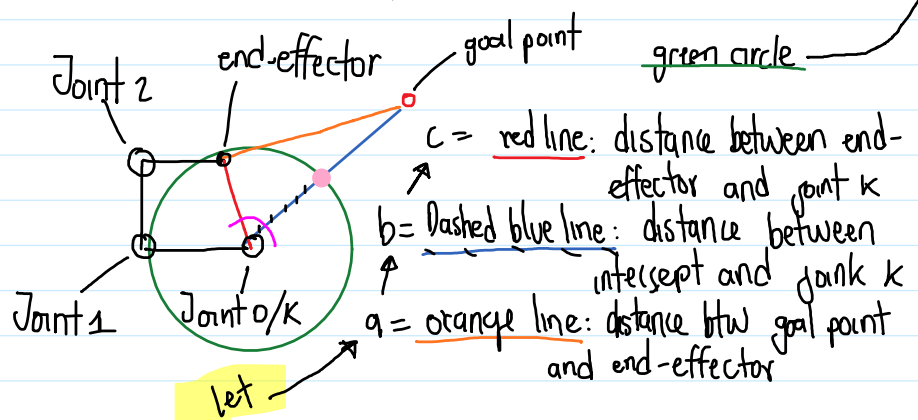 goal point
end-effector
green circle
Joint 2
c = red line: distance between end-
effector and joint K
b= Dashed blue line: distance between
intersept and joink K
Joint 1
Joint 0/K
a = orange line: distance btw goal point
and end-effector
let